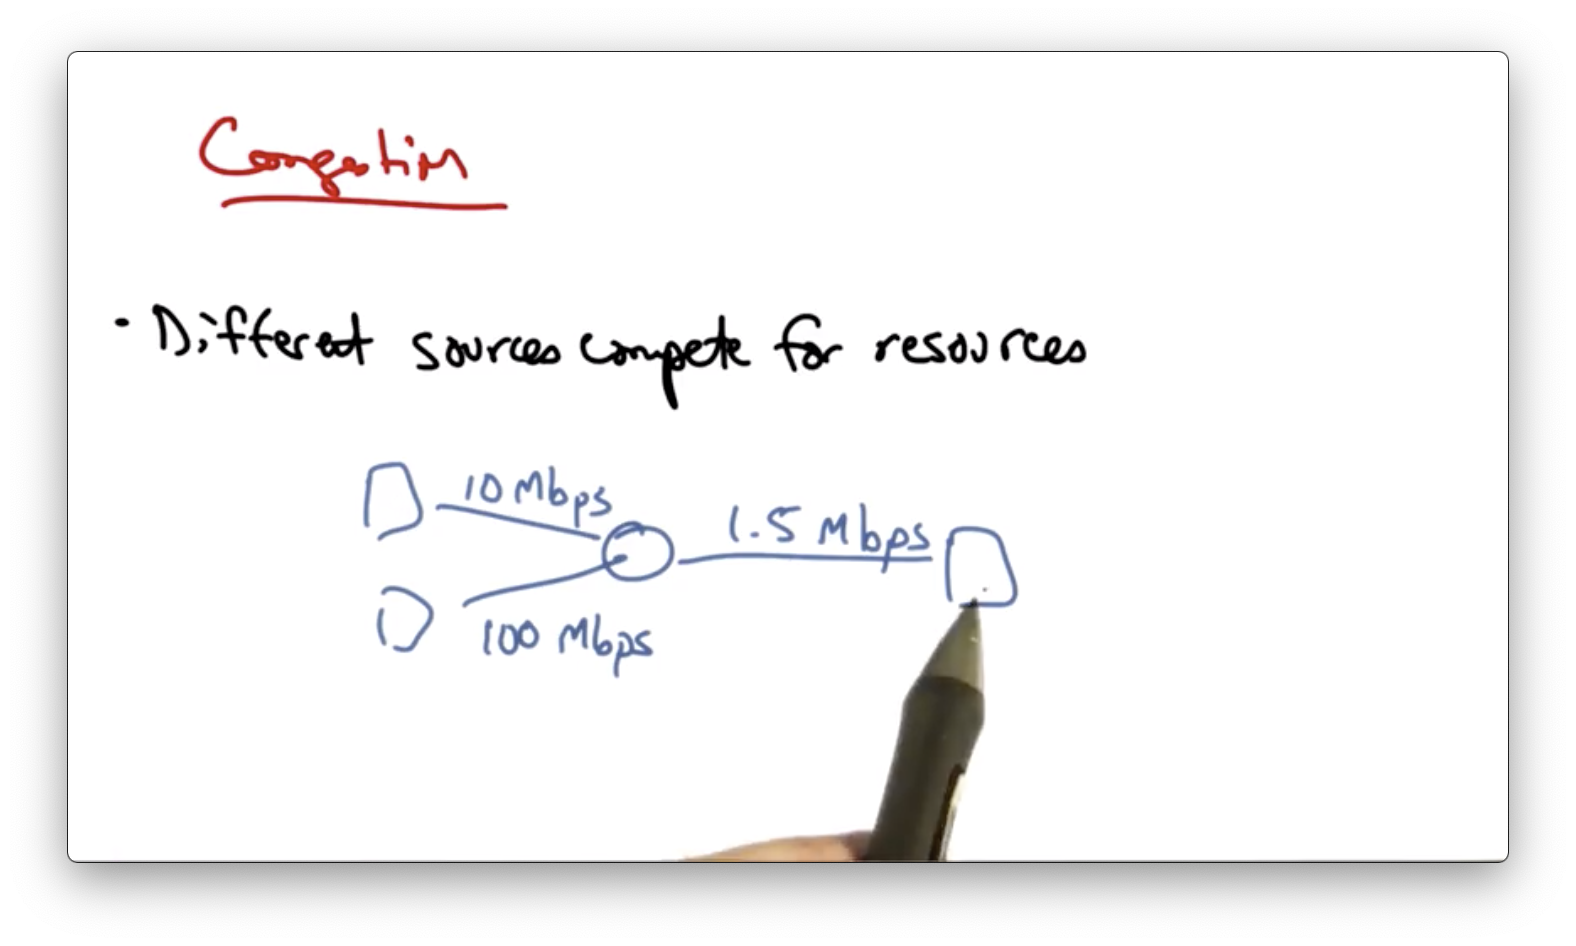 Congestion
· Different sources compete for resources
10 Mbps
1.5 Mbps
100 Mbps